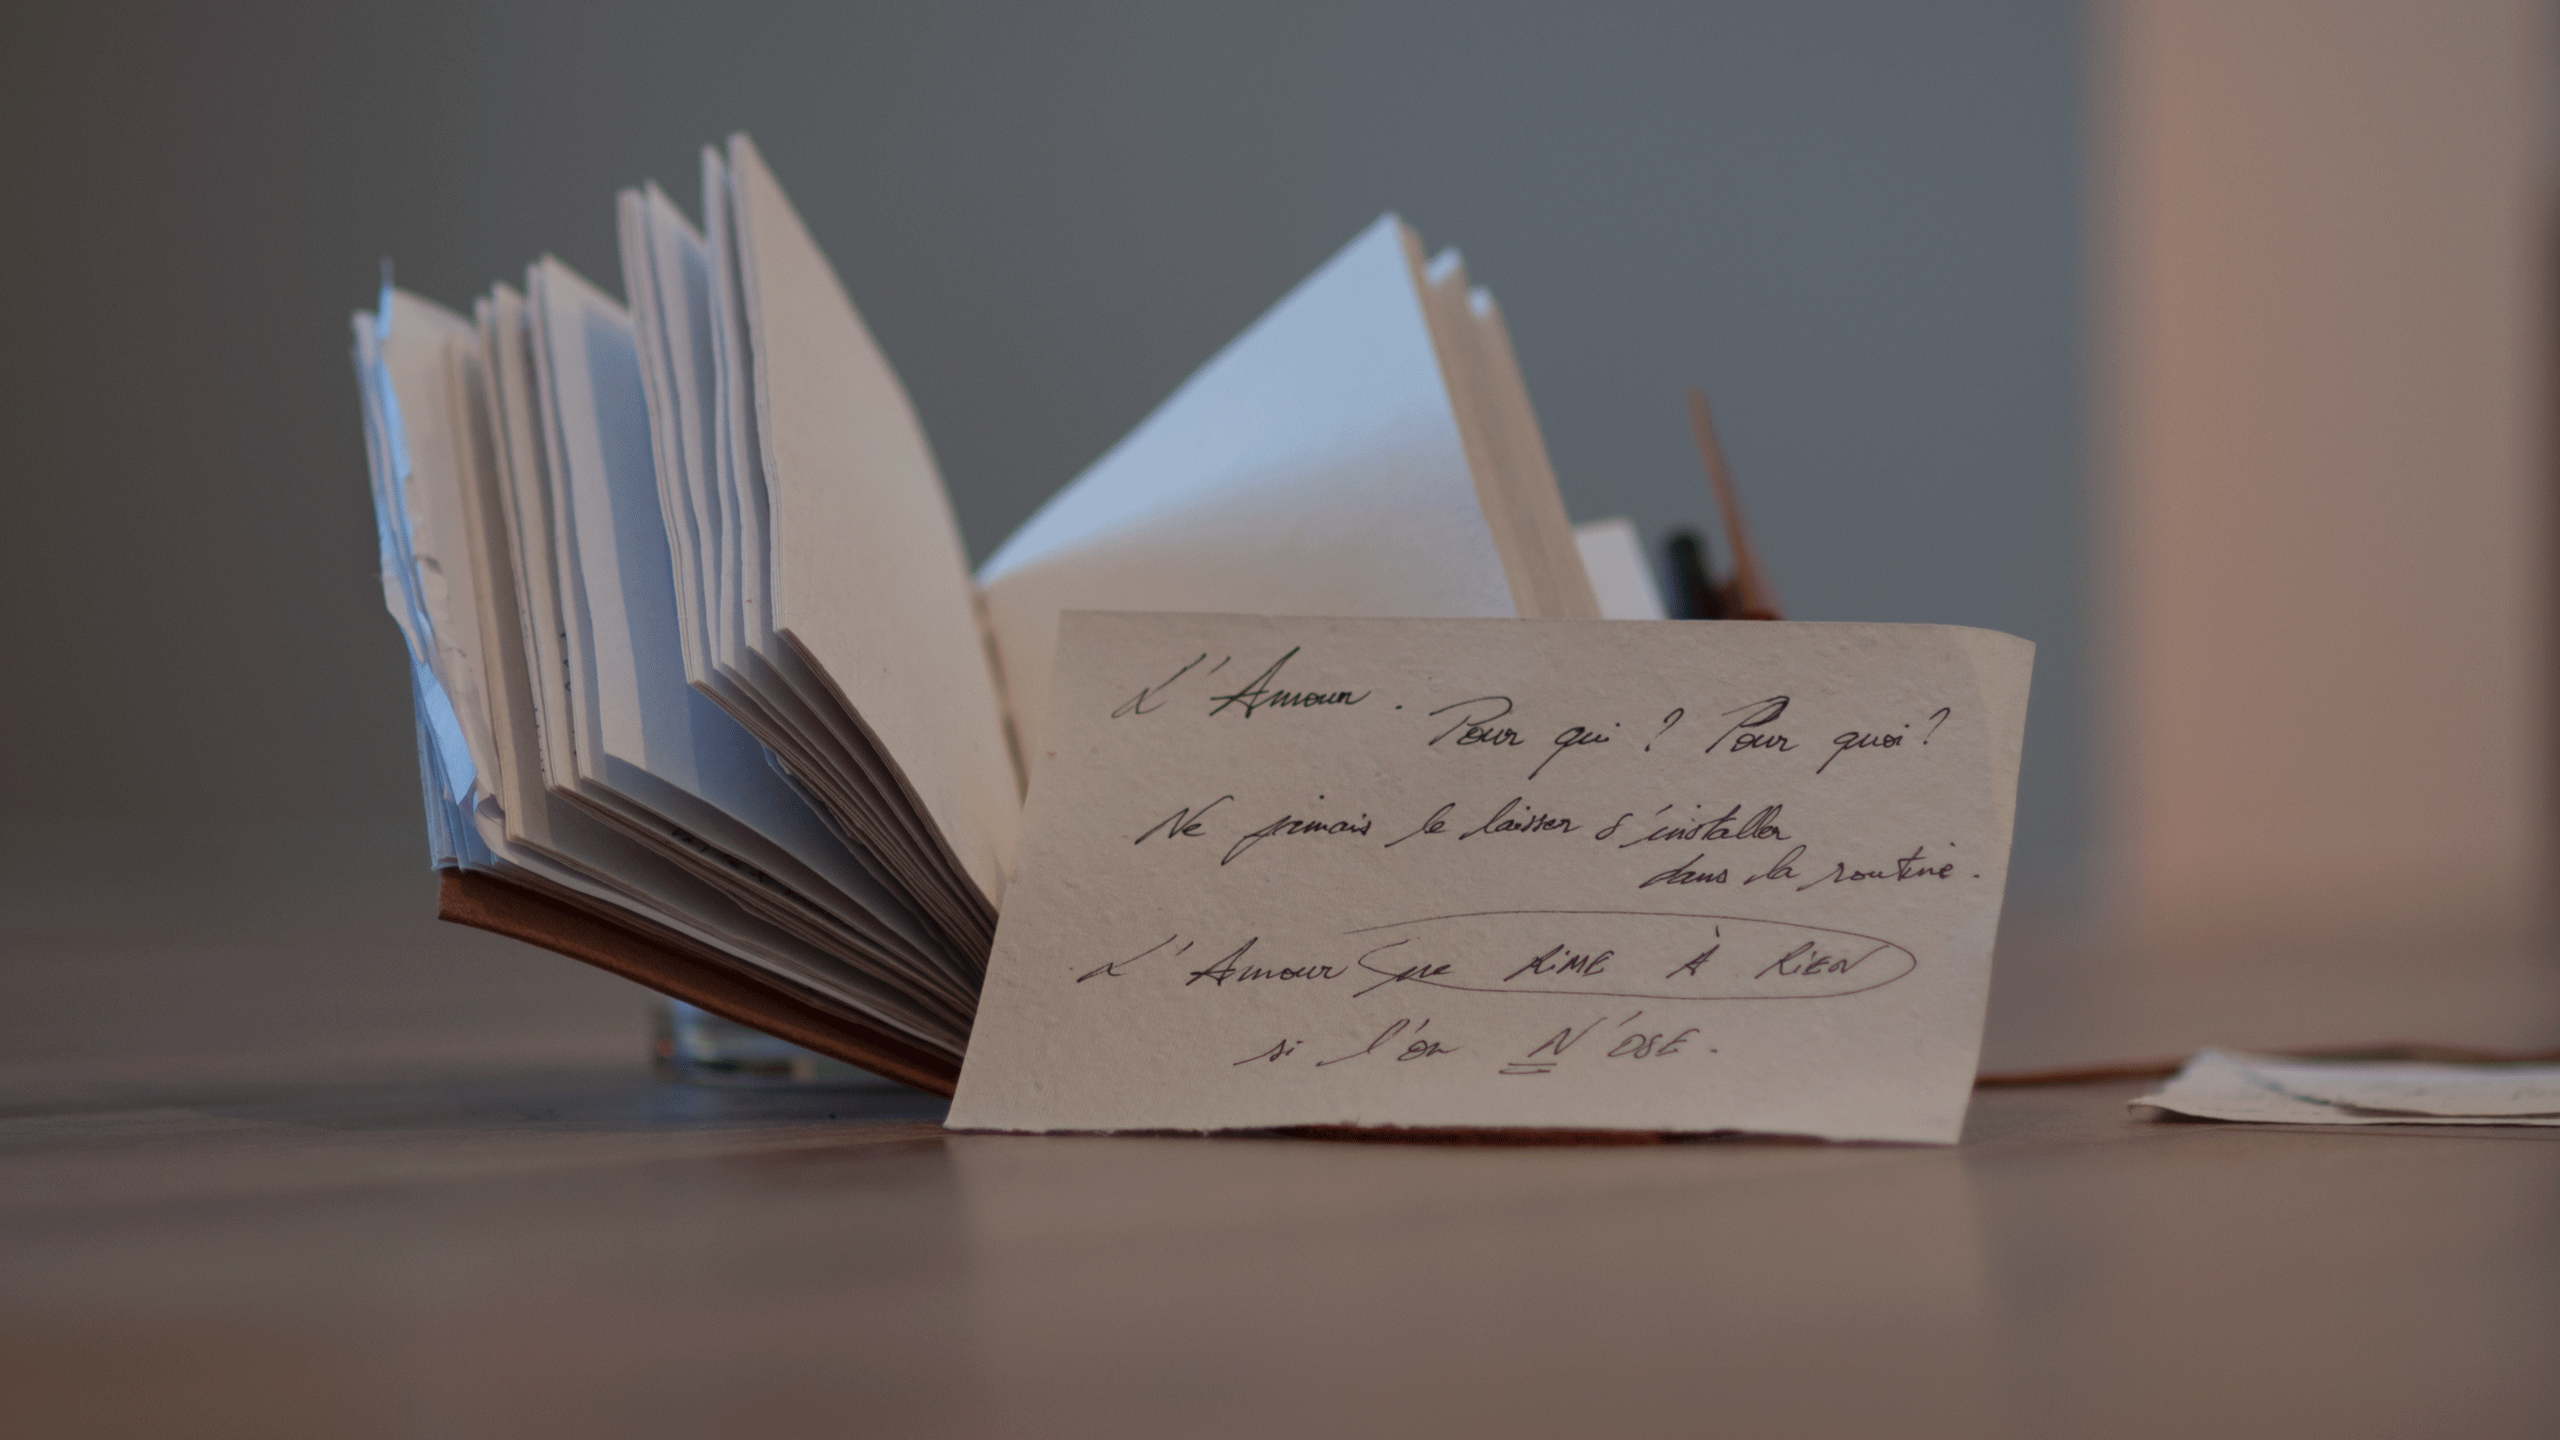 L'Amour.
Pour qui ? Pour quoi ?
Ne jamais le laisser s'installer
dans la routine.
L'Amour que RIME À RIEN
si l'on N'OSE.